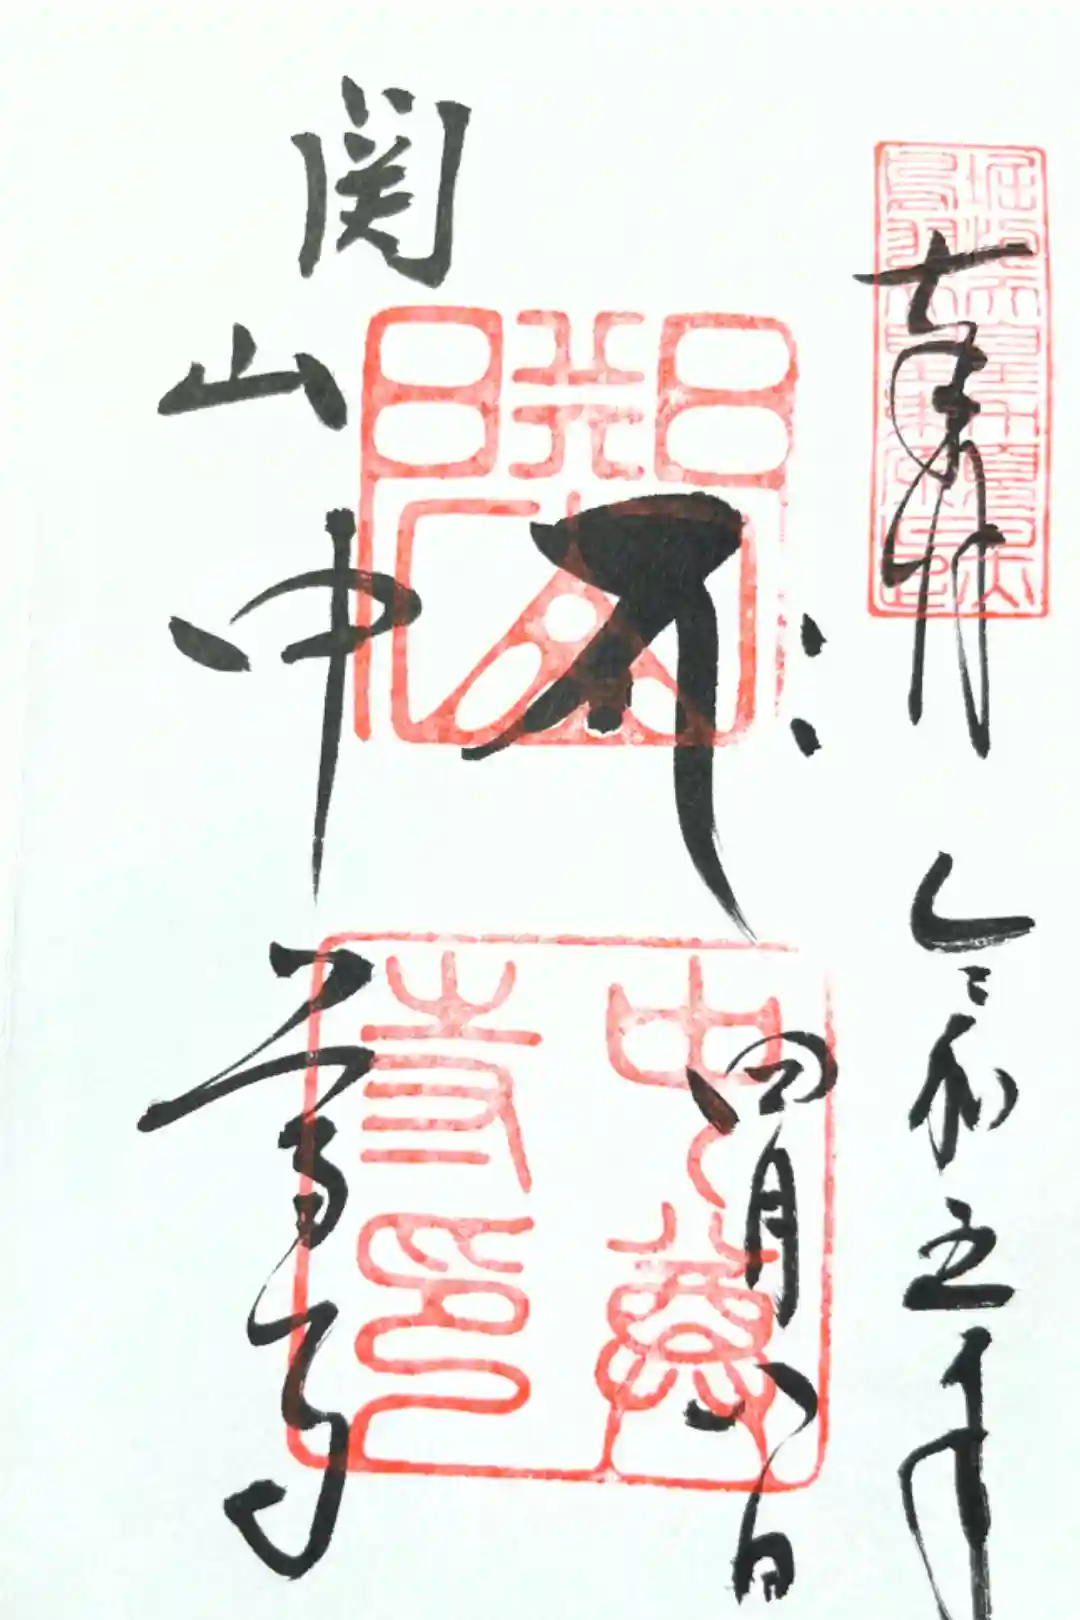 奉拝 令和五年
四月八日
𑖥𑖾
関山 中尊寺
中尊
寺印